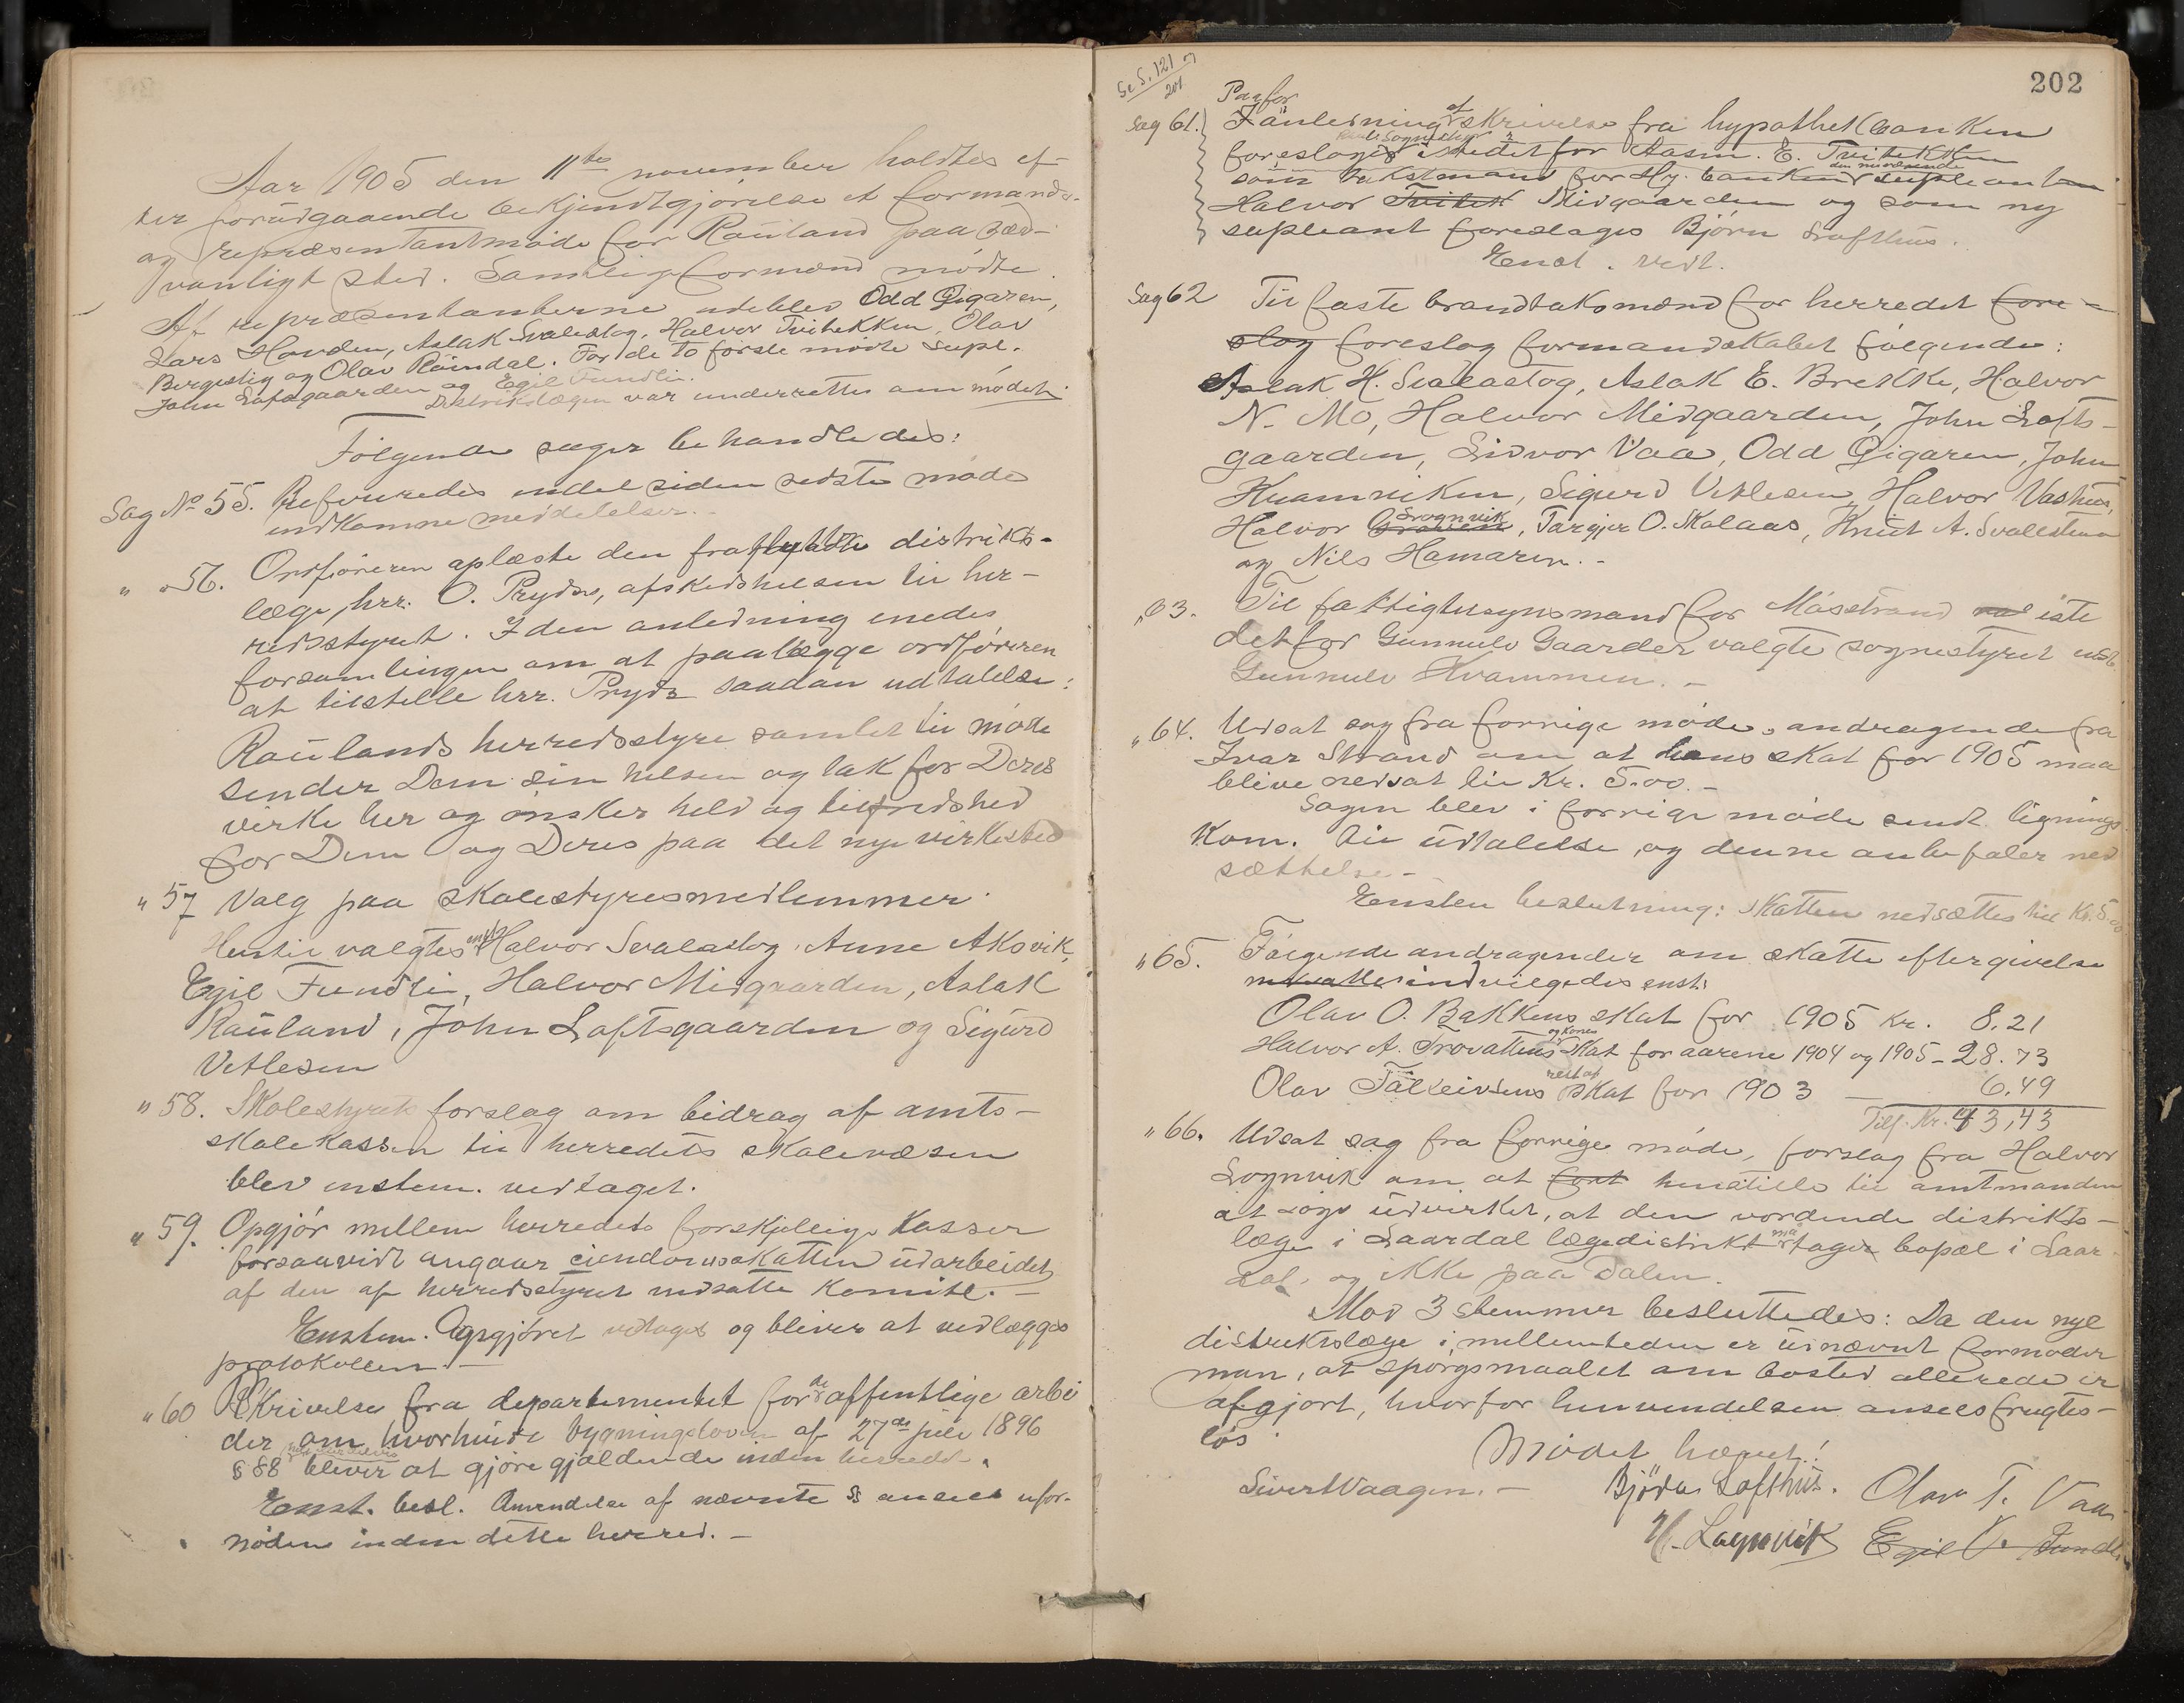 Aar 1905 den 11te november holdtes ef-
ter forudgaaende bekjendtgjörelse et formands-
og repræsentantmöde for Rauland paa sæd-
vanligt sted. Samtlige formænd mödte.
Af repræsentanterne udeblev Odd Gigaren,
Lars Hovden, Aslak Svalastog, Halvor Tvitekken, Olav
Bergestig og Olav Röindal. For de to förste mödte supl.
John Loftsgaarden og Egil Fundlin.
Distriktslægen var underrettet om mödet.
Følgende sager behandledes:
Sag No 55. Refereredes endel siden sidste möde
indkomne meddelelser.-
" " 56. Ordföreren oplæste den fraflyttede distrikts-
læge, hrr. O. Pryds, afskedshilsen til her-
redsstyret. I den anledning enedes
forsamlingen om at paalægge ordföreren
at tilstille hrr. Pryds saadan udtalelse:
Raulands herredsstyre samlet til möde
sender Dem sin hilsen og tak for Deres
virke her og önsker held og tilfredshed
for Dem og Deres paa det nye virkested
" 57 Valg paa skolestyresmedlemmer.
Hertil valgtes enst. Halvor Svalastog, Anne Aksvik,
Egil Fundli, Halvor Midgaarden, Aslak
Rauland, John Loftsgaarden og Sigurd
Vetlesen
" 58. Skolestyrets forslag om bidrag af amts-
skolekassen til herredets skolevæsen
blev enstem. vedtaget.
" 59. Opgjör mellem herredets forskjellige kasser
forsaavidt angaar eiendomsskatten udarbeidet
af den af herredsstyret nedsatte komite.-
Enstem. Opgjöret vedtages og bliver at vedlægges
protokollen.-
" 60 Skrivelse fra departementet for de offentlige arbei
der om hvorvidt bygningsloven af 27de juli 1896
§ 88 bliver at gjöre gjældende inden herredet.
Enst. besl. Anvendelse af nævnte § ansees ufor-
nöden inden dette herred.-
202
Se S. 121 og
201
Paafor
Sag 61. I anledning af skrivelse fra hypothekbanken
foreslages istedetfor Aasm. E. Tvitekken
som takstmand for Hy. banken den nuværende supleanten
Halvor Tvitek Midgaarden og som ny
supleant foreslages Björn Lofthus.
Enst. vedt.
Sag 62 Til faste brandtaksmænd for herredet fore-
slog foreslog formandskabet fölgende:
Aslak H. Svalastog, Aslak E. Brekke, Halvor
N. Mo, Halvor Midgaarden, John Lofts-
gaarden, Sidvor Vaa, Odd Gigaren, John
Kvamniken, Sigurd Vetlesen, Halvor Vashus,
Halvor Lognvik, Targjer O. Skalaas, Knut A. Svalestuen
og Nils Hamaren.-
" 63. Til fattigtilsynsmand for Mösstrand val iste
detfor Gunnulv Gaarder valgte sognestyret enst.
Gunnulv Kvammen.-
" 64. Udsat sag fra forrige möde, andragende fra
Ivar Strand om at hans skat for 1905 maa
blive nedsat til Kr. 5.00.-
Sagen blev i forrige möde sendt lignings-
kom. til udtalelse, og denne anbefaler ned
sættelse-
Enstem beslutning: Skatten nedsættes til Kr. 5.00.
" 65. Følgende andragender om skatte eftergivelse
indvilgedes enst:
Olav O. Bakkens skat for 1905 Kr. 8,21
Halvor A. Trovattens og kones skat for aarene 1904 og 1905 - 28.73
Olav Talleivsens rest af skat for 1903 — 6.49
Tils. Kr. 43,43
" 66. Udsat sag fra forrige möde, forslag fra Halvor
Lognvik om at henstille til amtmanden
at söge udvirket, at den vordende distrikts-
læge i Laardal lægedistrikt maa tage bopæl i Laar-
dal, og ikke paa Dalen.
Mod 3 stemmer besluttedes: Da den nye
distriktslæge i mellemtiden er udnævnt formoder
man, at spörgsmaalet om bosted allerede er
afgjort, hvorfor henvendelsen ansees frugtes-
lös.
Mödet hævet!
Sivert Vaagen.- Björn Lofthus. Olav T. Vaa.
H. Lognvik Egil V. Fundli